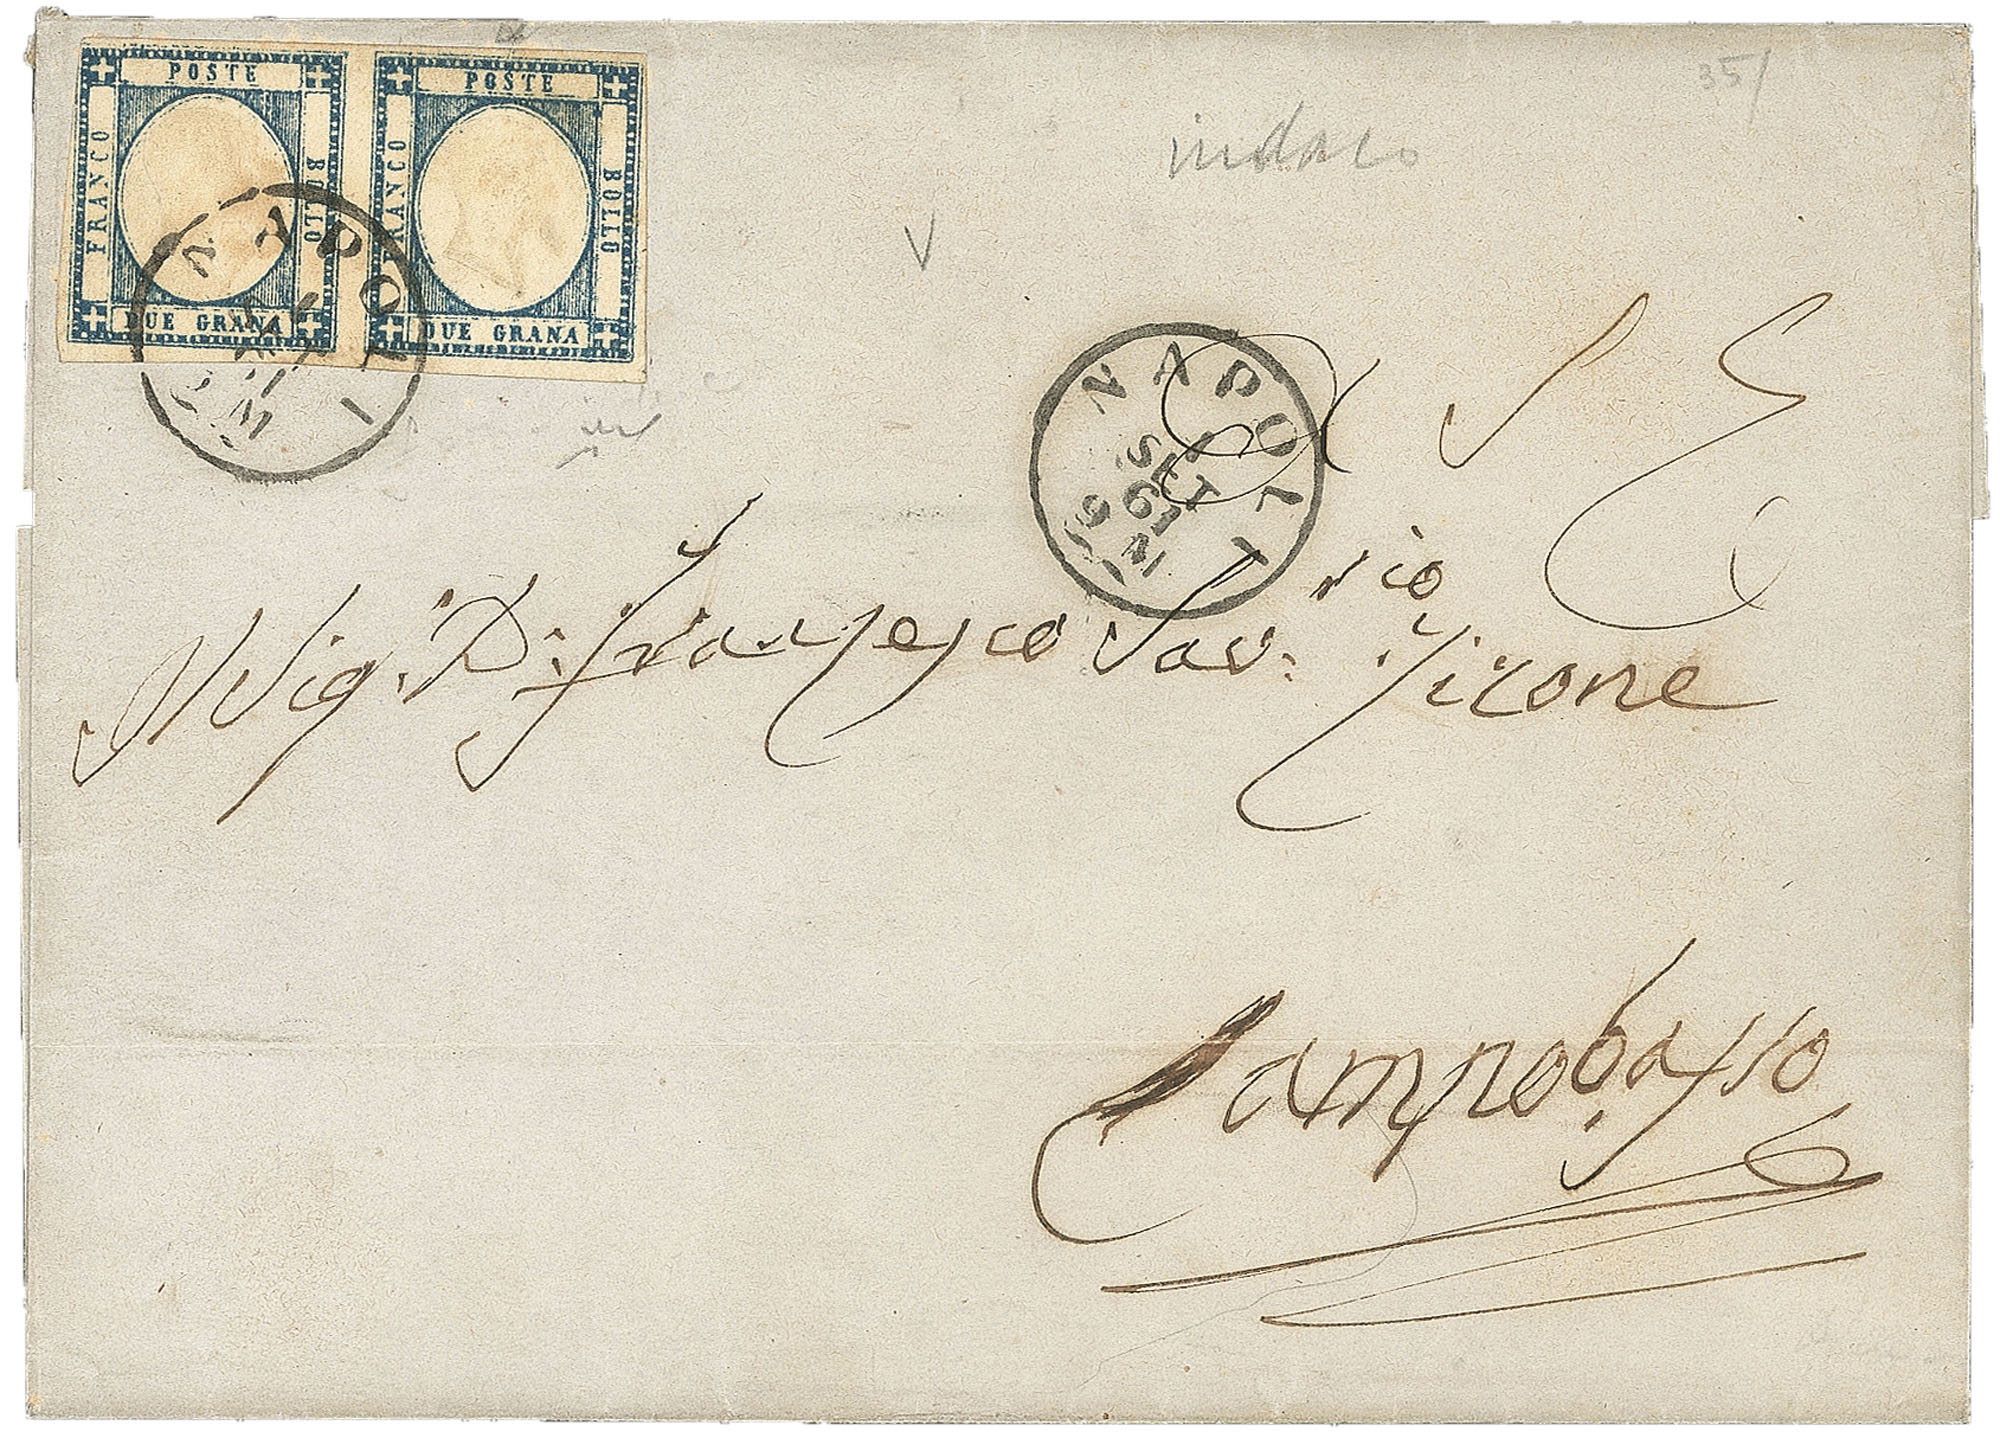 POSTE POSTE
FRANCO BOLLO FRANCO BOLLO
DUE GRANA DUE GRANA
NAPOLI
35/
indaco
V
NAPOLI
SET
61
Sig. D. Francesco Sav.rio
Campobasso